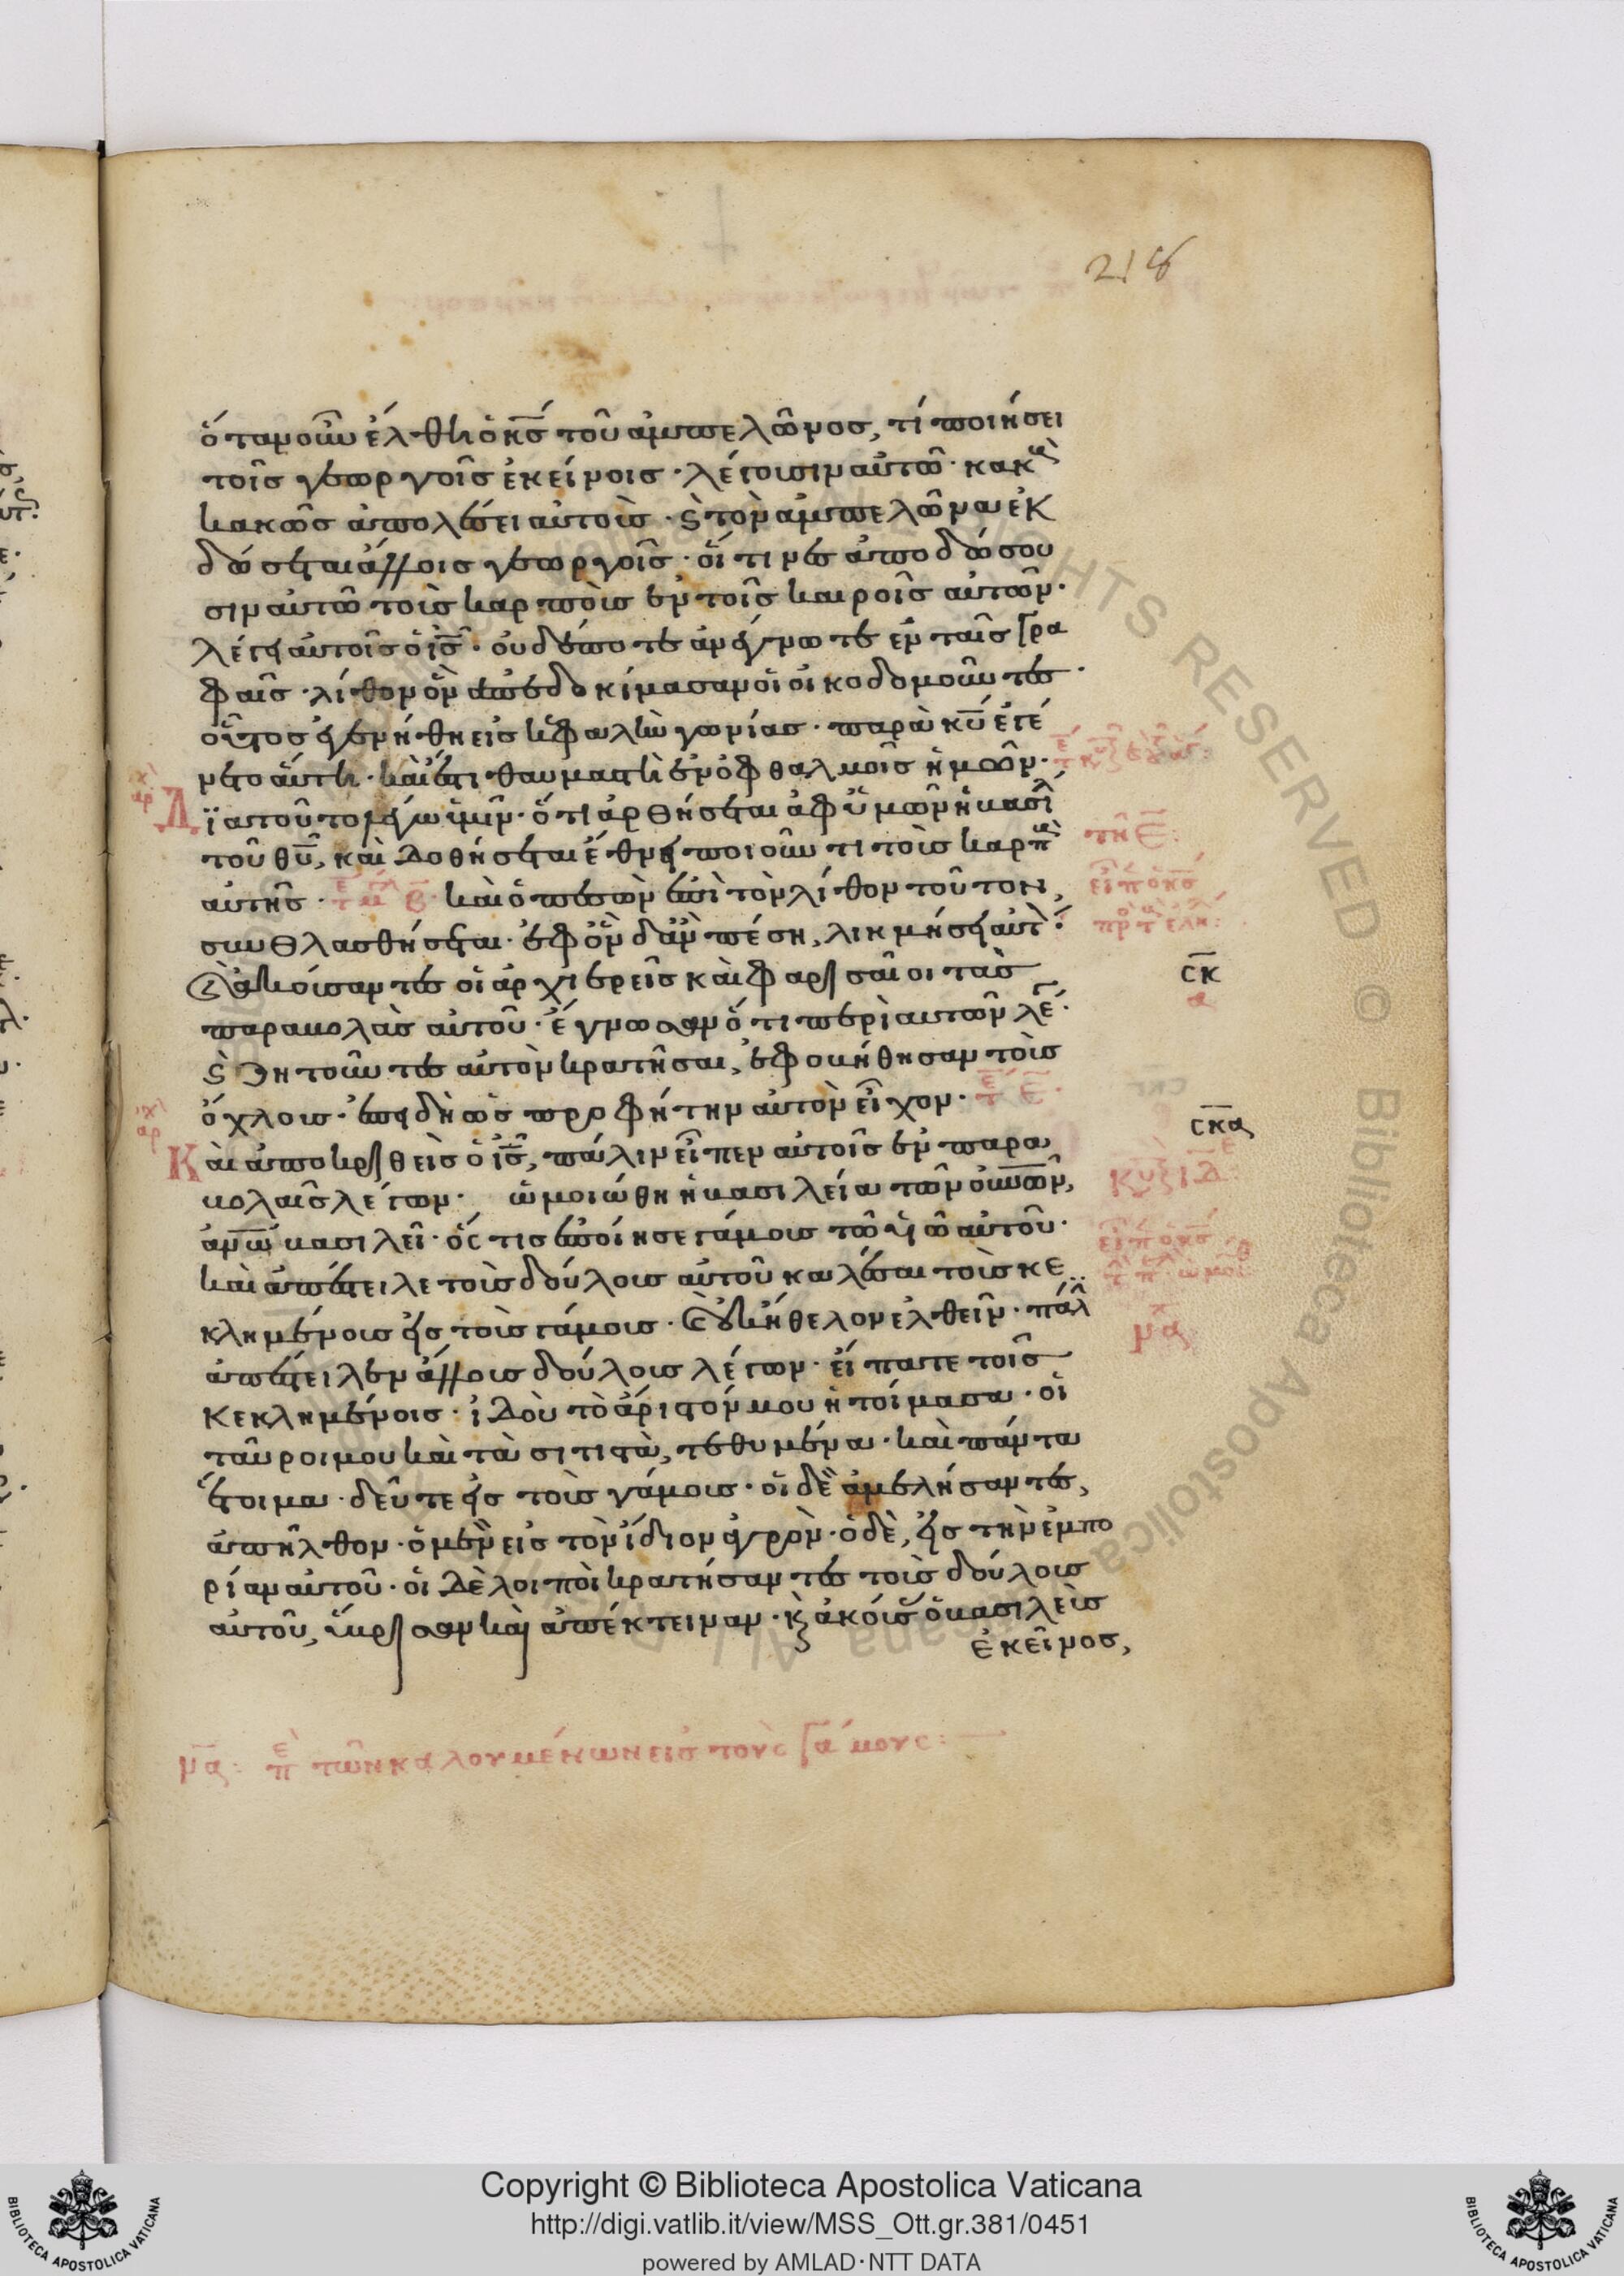 218
ὅταν οὖν ἔλθη ὁ κ̅ς̅ τοῦ ἀμπελῶνος, τί ποιήσει
τοῖς γεωργοῖς ἐκείνοις · λέγουσιν αὐτῶ · κακοὺς
κακῶς ἀπολέσει αὐτοὺς · ϗ τὸν ἀμπελῶνα ἐκ
δόσεται ἄλλοις γεωργοῖς · οἵτινες ἀποδώσου
σιν αὐτῶ τοὺς καρποὺς ἐν τοῖς καιροῖς αὐτῶν ·
λέγει αὐτοῖς ὁ ι̅ς̅ · οὐδέποτε ἀνέγνωτε ἐν ταῖς γρα
φαῖς · λίθον ὃν ἀπεδοκίμασαν οἱ οἰκοδομοῦντες ·
οὗτος ἐγενήθη εἰς κεφαλὴν γωνίας · παρὰ κ̅υ̅ ἐγέ
νετο αὕτη · καὶ ἔστι θαυμαστὴ ἐν ὀφθαλμοῖς ἡμῶν ·
Διατοῦτο λέγω ὑμῖν · ὅτι ἀρθήσεται ἀφ ὑμῶν ἡ βασιλ
τοῦ θ̅υ̅, καὶ δοθήσεται ἔθνει ποιοῦντι τοὺς καρπ
αὐτῆς · καὶ ὁ πεσὼν ἐπὶ τὸν λίθον τοῦτον,
συνθλασθήσεται · ἐφ ὃν δ ἂν πέση, λικμήσει αὐτ ·
ϗ ἀκούσαντες οἱ ἀρχιερεῖς καὶ φαρισαῖοι τὰς
παραβολὰς αὐτοῦ · ἔγνωσαν ὅτι περὶ αὐτῶν λέ ·
ϗ ζητοῦντες αὐτὸν κρατῆσαι, ἐφοβήθησαν τοὺς
ὄχλους · ἐπειδὴ ὡς προφήτην αὐτὸν εἶχον ·
Καὶ ἀποκριθεὶς ὁ ι̅ς̅, πάλιν εἶπεν αὐτοῖς ἐν παρα
βολαῖς λέγων · ὡμοιώθη ἡ βασιλεία τῶν ο̅υ̅ν̅ω̅ν,
ἀν̅ω̅ βασιλεῖ · ὅς τις ἐποίησε γάμους τῶ υἱῶ αὐτοῦ ·
καὶ ἀπέστειλε τοὺς δούλους αὐτοῦ καλέσαι τοὺς κε
κλημένους εἰς τοὺς γάμους · ϗ οὐκ ἤθελον ἐλθεῖν · πάλ
ἀπέστειλεν ἄλλους δούλους λέγων · εἴπατε τοῖς
κεκλημένοις · ἰδοὺ τὸ ἄριστόν μου ἡτοίμασα · οἱ
ταῦροι μου καὶ τὰ σιτιστὰ, τεθυμένα · καὶ πάντα
ἕτοιμα · δεῦτε εἰς τοὺς γάμους · οἱ δὲ ἀμελήσαντες,
ἀπῆλθον · ὁ μὲν εἰς τὸν ἴδιον ἀγρὸν · ὁ δὲ, εἰς τὴν ἐμπο
ρίαν αὐτοῦ · οἱ δὲ λοιποὶ κρατήσαντες τοὺς δούλους
αὐτοῦ, ὕβρισαν καὶ ἀπέκτειναν · ϗ ἀκούσ ὁ βασιλεὺς
ἐκεῖνος,
σ̅κ̅
α
σ̅κ̅α̅
μ̅α̅ : πε τῶν καλουμένων εἰς τοὺς γάμους :
RIGHTS RESERVED © Biblioteca Apostolica
Copyright © Biblioteca Apostolica Vaticana
http://digi.vatlib.it/view/MSS_Ott.gr.381/0451
powered by AMLAD·NTT DATA
BIBLIOTECA APOSTOLICA VATICANA
BIBLIOTECA APOSTOLICA VATICANA